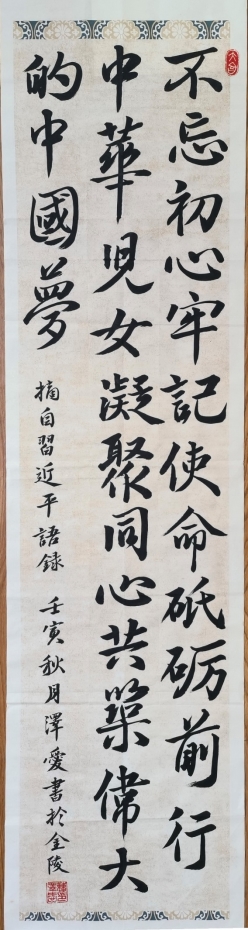 不忘初心牢記使命砥砺前行
中華児女凝聚同心共築偉大
的中國夢
摘自習近平語録
壬寅秋月澤愛書於金陵